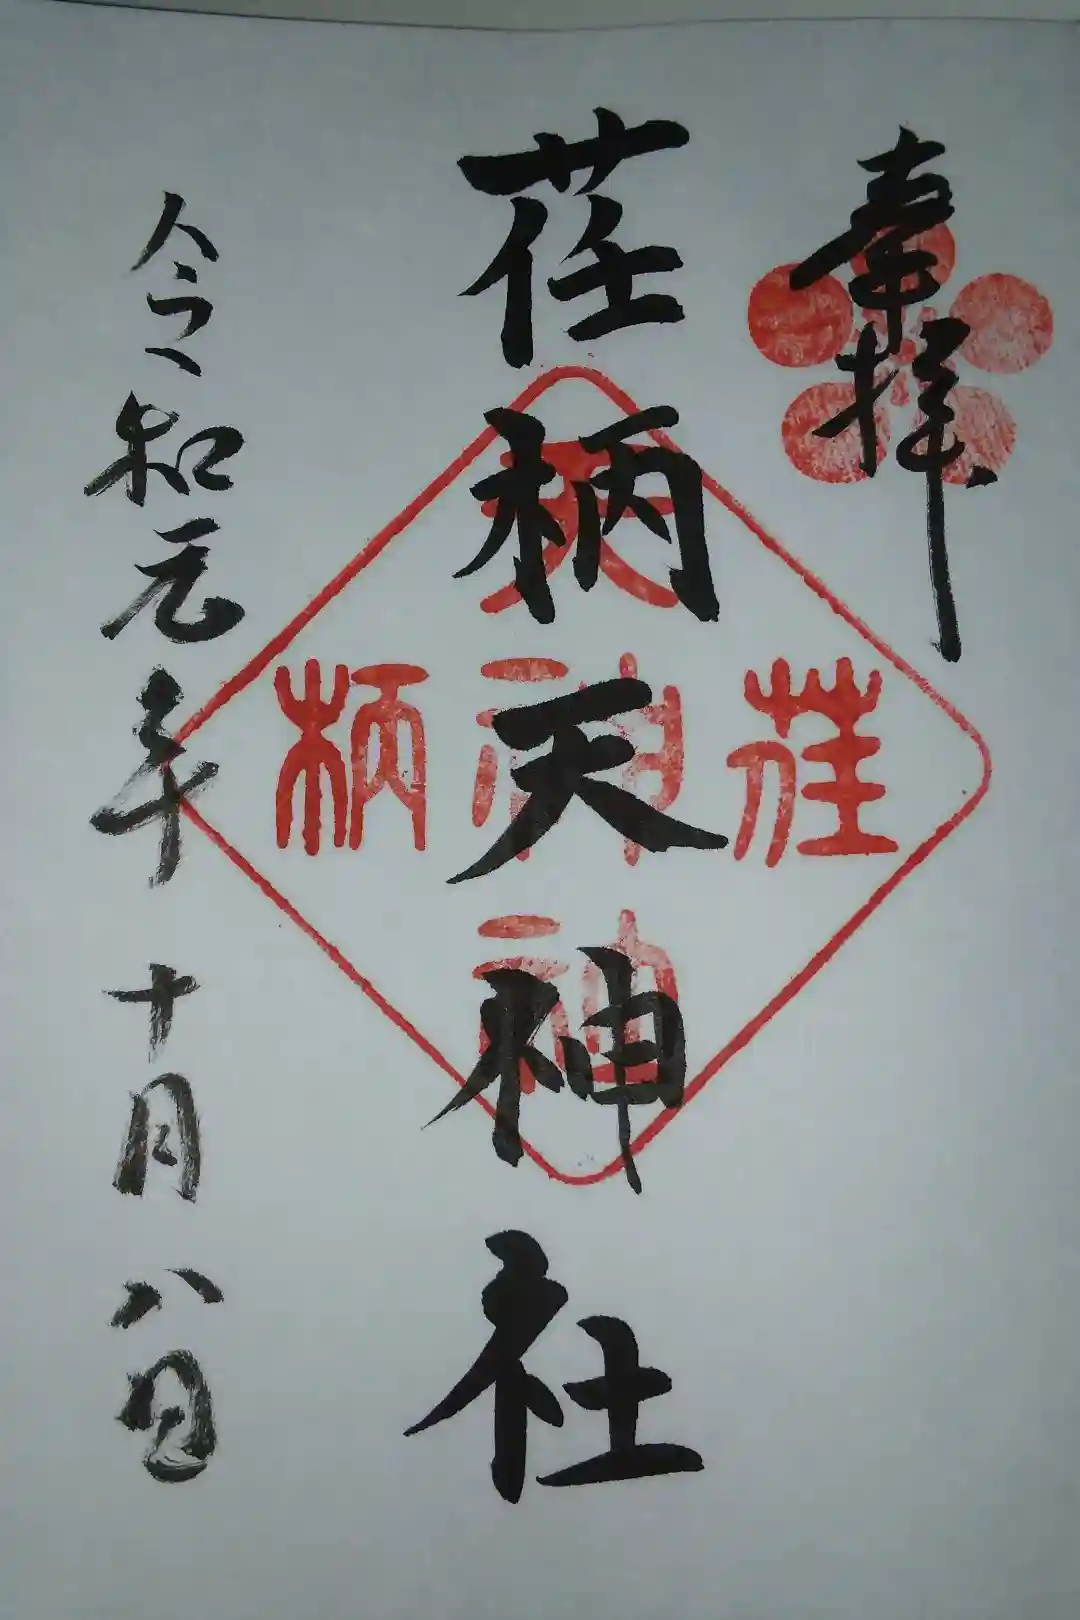 奉拝
荏柄天神社
令和元年十月八日
荏
天神
柄